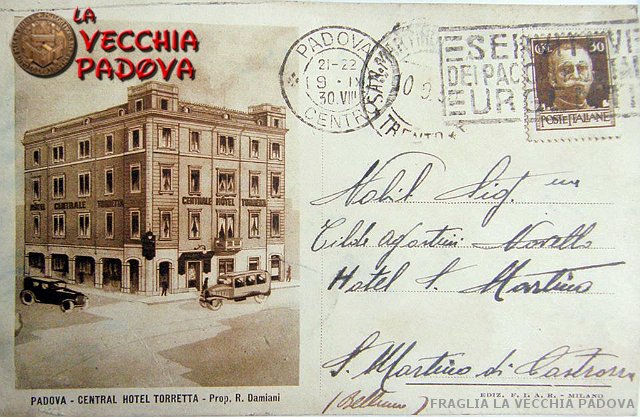 LA
VECCHIA
PADOVA
PADOVA
21-22
9 · IX
30.VIII
CENTRO
TRENTO
EUR
Cmi 30
POSTE ITALIANE
HOTEL CENTRALE TORRETTA
CENTRALE HOTEL TORRETTA
Nobil Sig.
Tilde Agostini Novello
Hotel S. Martino
S. Martino di
(Belluno)
PADOVA - CENTRAL HOTEL TORRETTA - Prop. R. Damiani
EDIZ. F. I. A. R. - MILANO
FRAGLIA LA VECCHIA PADOVA